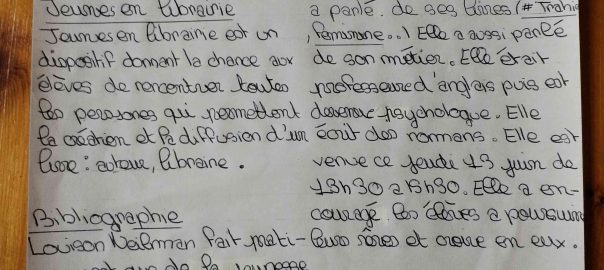 Jeunes en librairie
Jeunes en librairie est un
dispositif donnant la chance aux
élèves de rencontrer toutes
les personnes qui permettent
la création et la diffusion d'un
livre : auteur, libraire .
Bibliographie
Louison Neilman fait prati-
que de la jeunesse
a parlé de ses livres (# Trahie
, Pansionne...) Elle a aussi parlé
de son métier. Elle était
professeure d'anglais puis est
devenue psychologue. Elle
écrit des romans. Elle est
venue ce jeudi 13 juin de
13h30 a 15h30. Elle a en-
couragé les élèves a poursuivre
leurs rêves et croire en eux .